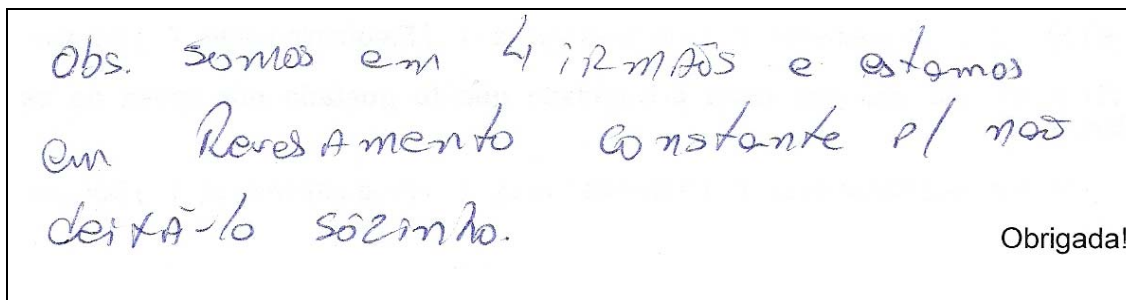 Obs. somos em 4 irmãos e estamos
em Revesamento constante p/ naõ
deixá-lo sôzinho.
Obrigada!